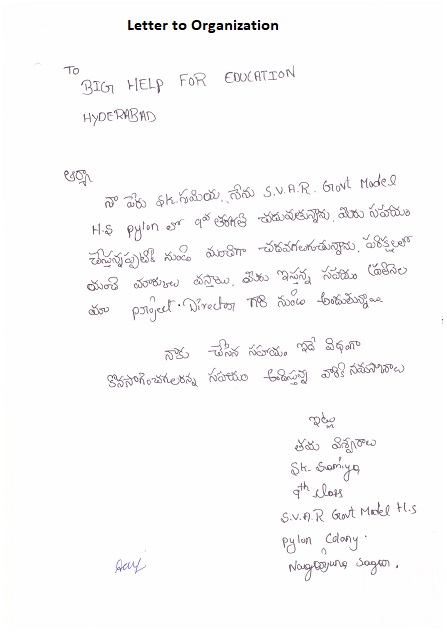 Letter to Organization
To
BIG HELP FOR EDUCATION
HYDERABAD
ఆర్యా
నా పేరు sk.సమియ. నేను S.V.A.R. Govt Model
H.S pylon లో 9వ తరగతి చదువుతున్నాను. మీరు సహాయం
చేస్తున్నప్పటి నుండి మంచిగా చదవగలుగుతున్నాను. పరీక్షలలో
మంచి మార్కులు వస్తాయి. మీరు ఇస్తున్న సహాయం ప్రతినెల
మా project.Director గారి నుండి అందుతున్నాయి
నాకు చేసిన సహాయం ఇదే విధంగా
కొనసాగించగలరన్న సహాయం అందిస్తున్న వారికి నమస్కారాలు
ఇట్లు
తమ విశ్వాసరాలు
Sk. Samiya
9th class
S.V.A.R Govt Model H.S
pylon Colony.
Nagarjuna Sagar.